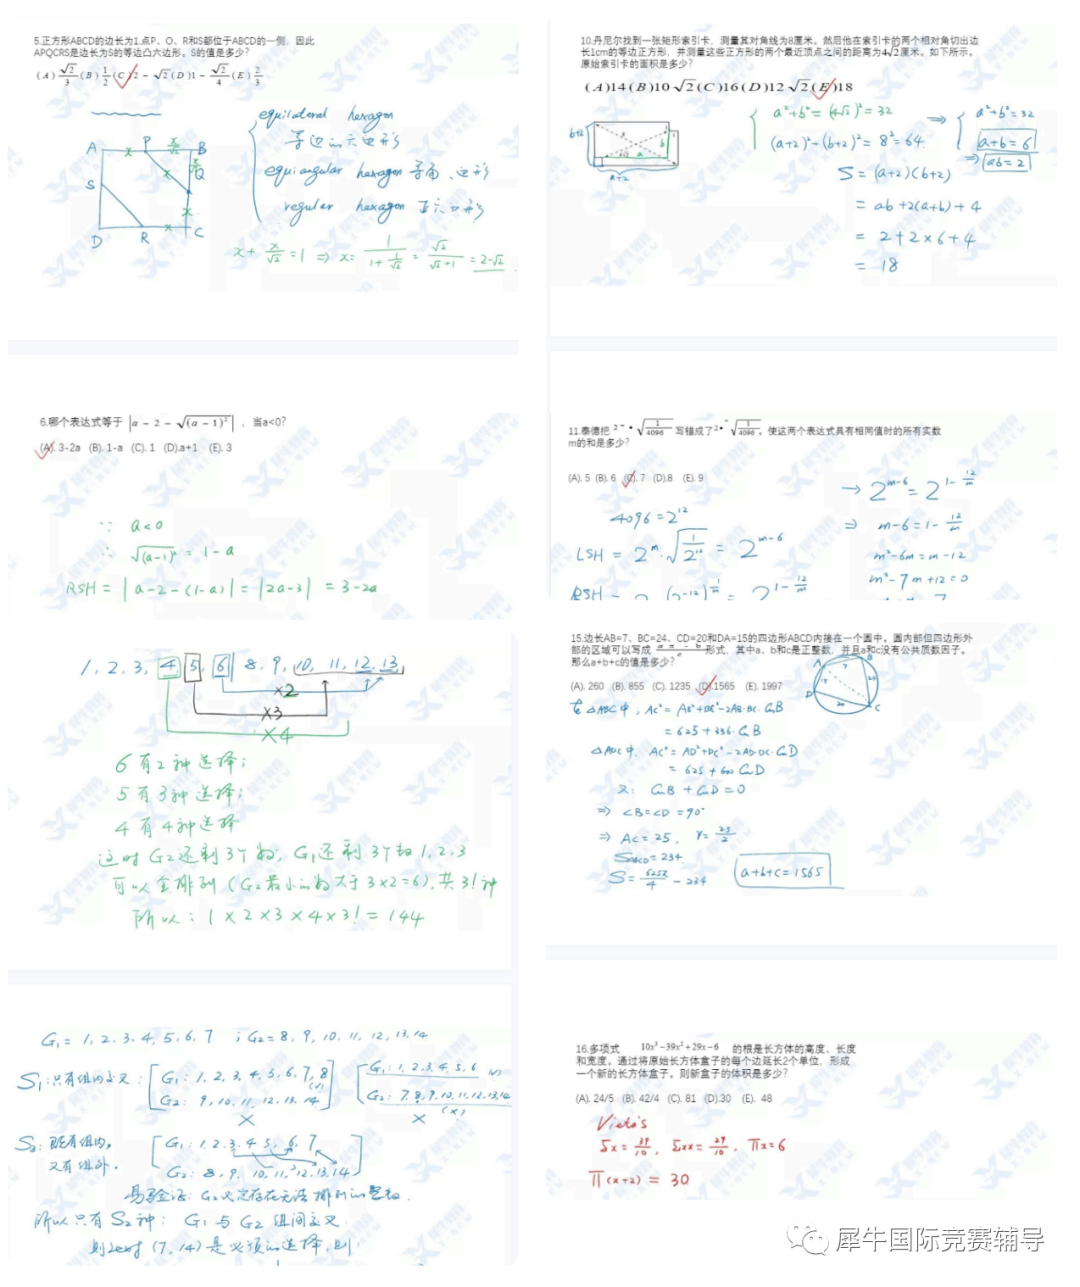 5.正方形ABCD的边长为1.点P、Q、R和S都位于ABCD的一侧，因此
APQCRS是边长为S的等边凸六边形。S的值是多少?
(A) √2/3 (B) 1/2 (C) 2 − √2 (D) 1 − √2/4 (E) 2/3
equilateral hexagon
等边的六边形
equiangular hexagon 等角六边形
regular hexagon 正六边形
A P B
S Q
D R C
x + x/√2 = 1 ⇒ x = 1/(1+1/√2) = √2/(√2+1) = 2-√2
6.哪个表达式等于 |a − 2 − √(a − 1)²| ，当a<0?
(A). 3-2a (B). 1-a (C). 1 (D).a+1 (E). 3
∵ a<0
∴ √(a-1)² = 1-a
RSH = |a-2-(1-a)| = |2a-3| = 3-2a
1, 2, 3, 4 5, 6 8, 9, 10, 11, 12, 13,
×2
×3
×4
6有2种选择;
5有3种选择;
4有4种选择
这时G2还剩3个数, G1还剩3个数1, 2, 3
可以全排列 (G2最小的数大于3×2=6), 共3!种
所以: 1×2×3×4×3! = 144
G1 = 1, 2, 3, 4, 5, 6, 7 ; G2 = 8, 9, 10, 11, 12, 13, 14
S1: 只有组内定义: G1: 1, 2, 3, 4, 5, 6, 7, 8 G1: 1, 2, 3, 4, 5, 6
G2: 9, 10, 11, 12, 13, 14 G2: 7, 8, 9, 10, 11, 12, 13, 14
S2: 既有组内, G1: 1, 2, 3, 4, 5, 6, 7
又有组外, G2: 8, 9, 10, 11, 12, 13, 14
所以只有S2种: G1与G2组间定义
(7, 14)是必须的选择, 则
10.丹尼尔找到一张矩形索引卡，测量其对角线为8厘米。然后他在索引卡的两个相对角切出边
长1cm的等边正方形，并测量这些正方形的两个最近顶点之间的距离为4√2厘米。如下所示。
原始索引卡的面积是多少?
(A)14 (B)10√2 (C)16 (D)12√2 (E)18
a²+b² = (4√2)² = 32
(a+2)²+(b+2)² = 8² = 64
⇒ a²+b² = 32
a+b = 6
⇒ ab = 2
b+2
a+2
S = (a+2)(b+2)
= ab+2(a+b)+4
= 2+2×6+4
= 18
11.泰德把 2ᵐ • √(1/4096) 写错成了 2• ᵐ√(1/4096)。使这两个表达式具有相同值时的所有实数
m的和是多少?
(A). 5 (B). 6 (C). 7 (D).8 (E). 9
4096 = 2¹²
LSH = 2ᵐ·√(1/2¹²) = 2ᵐ⁻⁶
→ 2ᵐ⁻⁶ = 2^(1-12/m)
⇒ m-6 = 1-12/m
m²-6m = m-12
m²-7m+12=0
15.边长AB=7、BC=24、CD=20和DA=15的四边形ABCD内接在一个圆中。圆内部但四边形外
部的区域可以写成 形式，其中a、b和c是正整数，并且a和c没有公共质数因子。
那么a+b+c的值是多少?
(A). 260 (B). 855 (C). 1235 (D).1565 (E). 1997
在△ABC中, AC² = AB²+BC²-2AB·BC·CosB
= 625 + 336·CosB
△ADC中, AC² = AD²+DC²-2AD·DC·CosD
= 625 + 600 CosD
又: CosB + CosD = 0
⇒ ∠B=∠D=90°
⇒ AC=25, r=25/2
S_ABCD = 234
S = 625π/4 - 234
a+b+c=1565
16.多项式 10x³−39x²+29x−6 的根是长方体的高度、长度
和宽度。通过将原始长方体盒子的每个边延长2个单位，形成
一个新的长方体盒子。则新盒子的体积是多少?
(A). 24/5 (B). 42/4 (C). 81 (D).30 (E). 48
Vieta's
Σx = 39/10, Σxx = 29/10, Πx = 6
Π(x+2) = 30
犀牛国际竞赛辅导